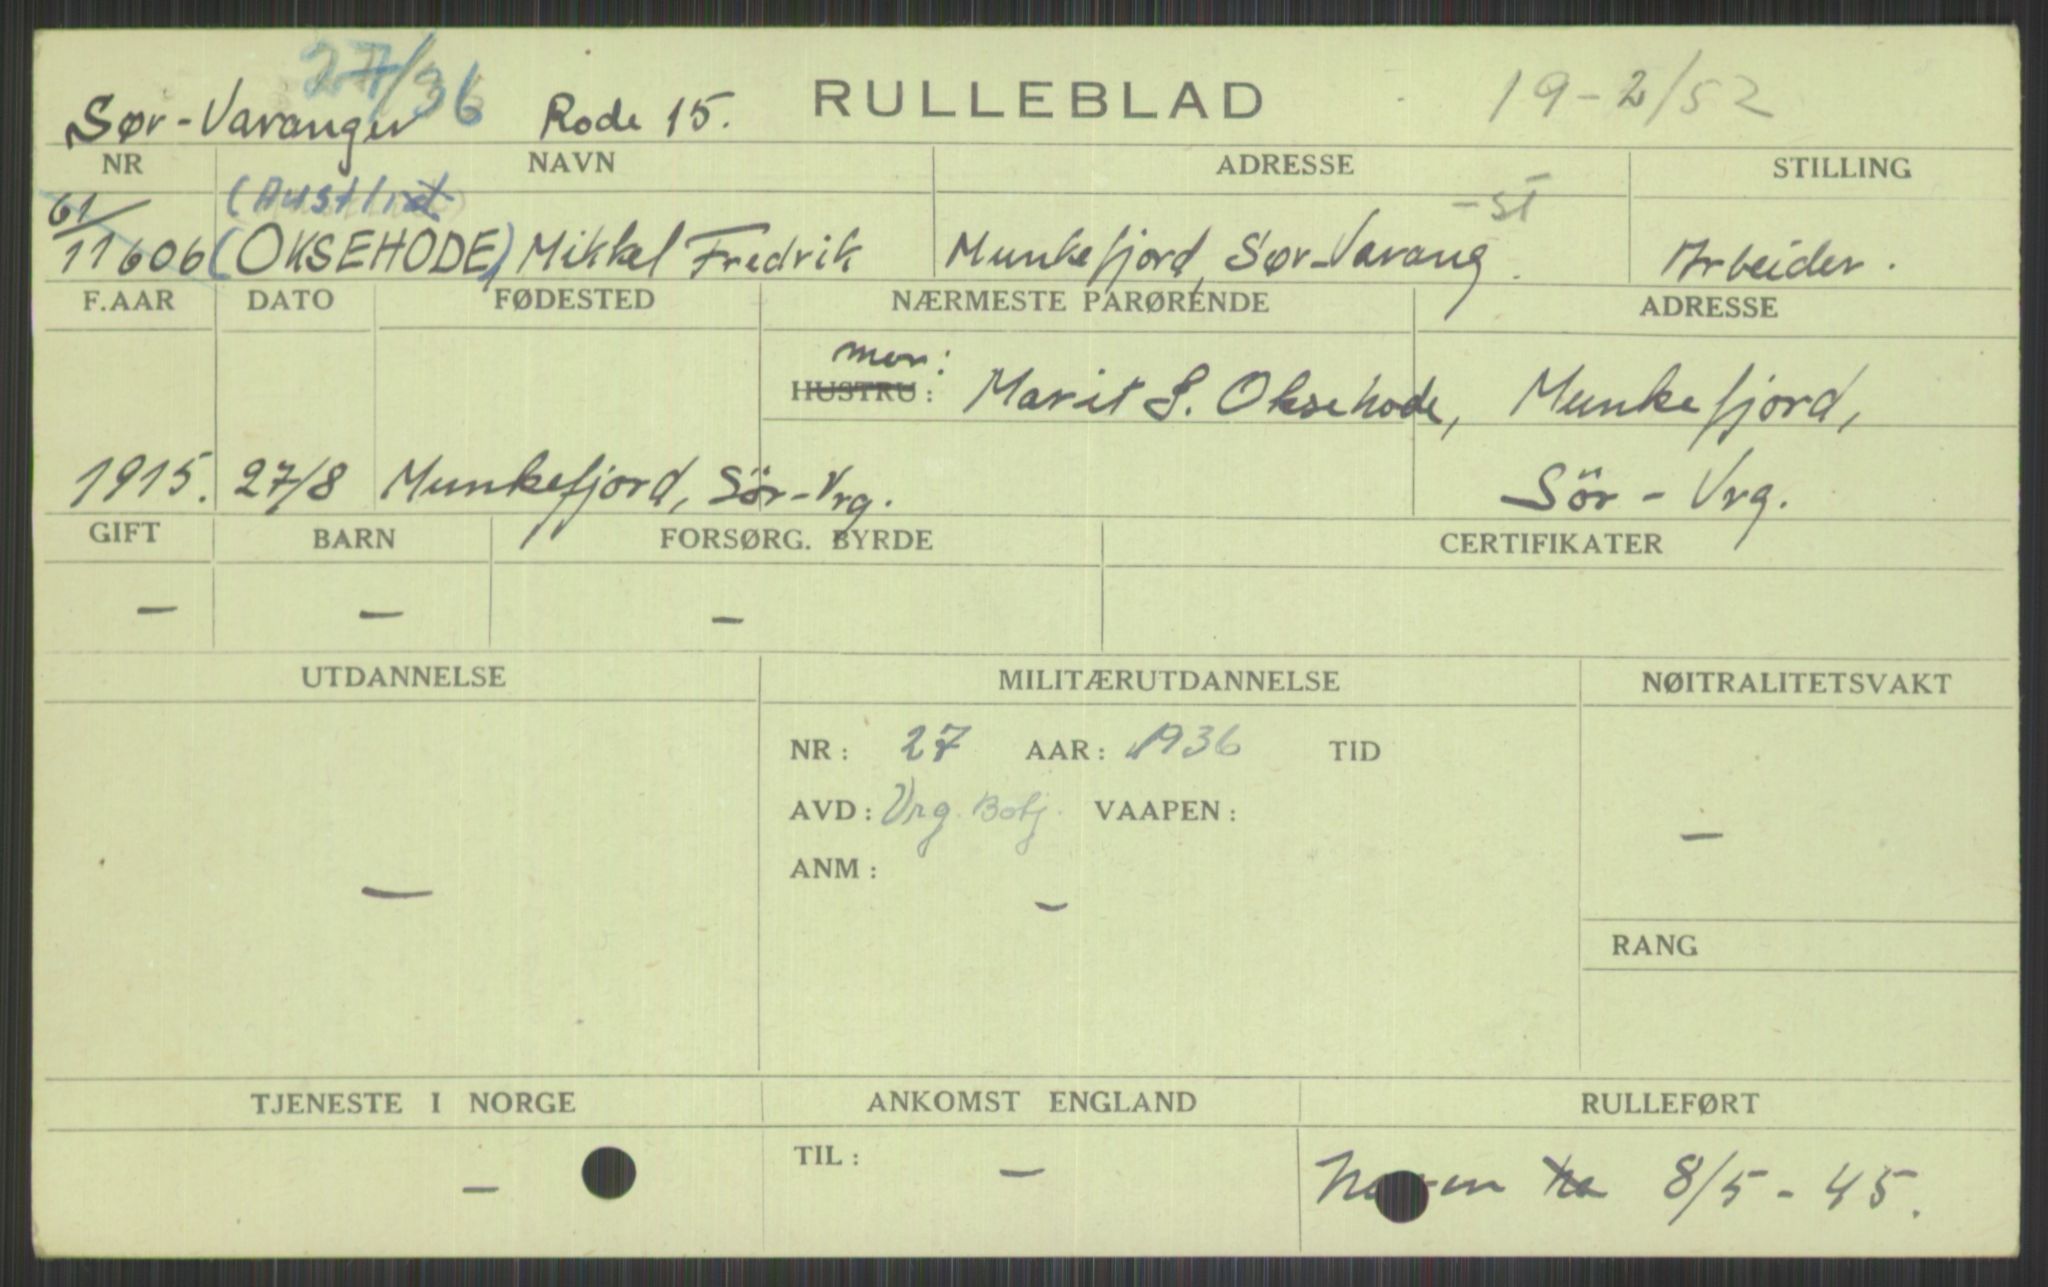 27/36
Sør-Varanger Rode 15. RULLEBLAD 19-2/52
NR NAVN ADRESSE STILLING
61/ (Austlid) -st
11606 (OKSEHODE) Mikkel Fredrik Munkefjord, Sør-Varang. Arbeider.
F.AAR DATO FØDESTED NÆRMESTE PARØRENDE ADRESSE
mor:
HUSTRU: Marit S. Oksehode, Munkefjord,
1915. 27/8 Munkefjord, Sör-Vrg. Sör - Vrg.
GIFT BARN FORSØRG. BYRDE CERTIFIKATER
— — —
UTDANNELSE MILITÆRUTDANNELSE NØITRALITETSVAKT
NR: 27 AAR: 1936 TID
AVD: Vrg. VAAPEN:
—
ANM:
— —
RANG
TJENESTE I NORGE ANKOMST ENGLAND RULLEFØRT
— TIL: — 8/5-45.